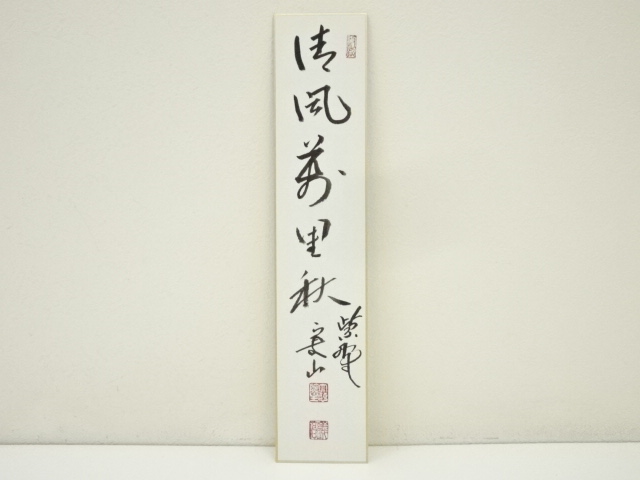 清風萬里秋
紫野
寛山